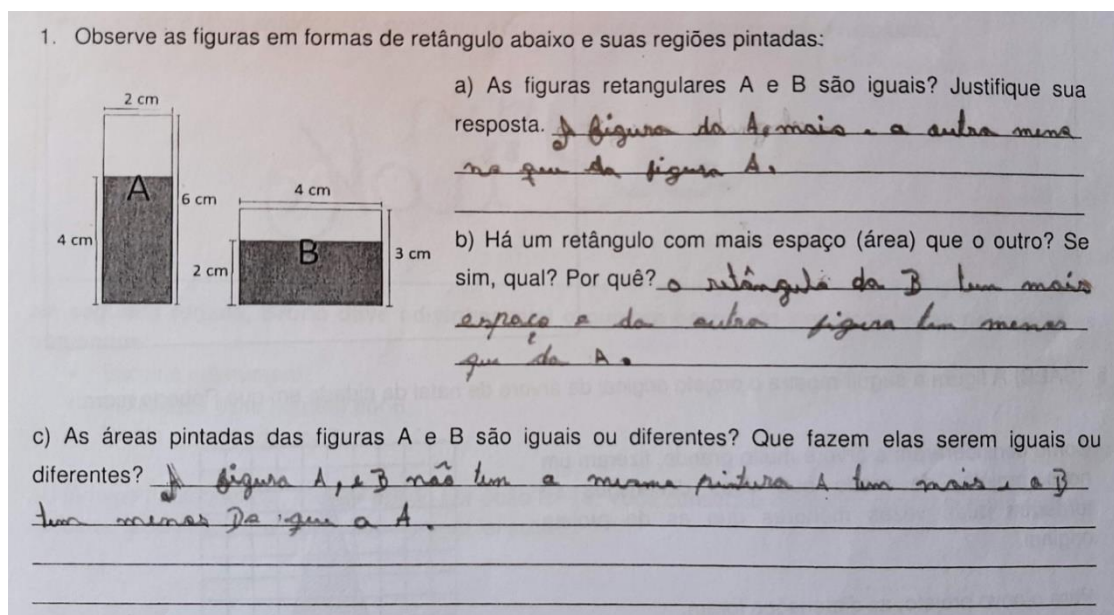 1. Observe as figuras em formas de retângulo abaixo e suas regiões pintadas:
2 cm
A
6 cm
4 cm
4 cm
B
3 cm
2 cm
a) As figuras retangulares A e B são iguais? Justifique sua
resposta. A figura da A, mais e a outra mena
no que da figura A.
b) Há um retângulo com mais espaço (área) que o outro? Se
sim, qual? Por quê? o retângulo da B tem mais
espaço e da outra figura tem menos
que da A.
c) As áreas pintadas das figuras A e B são iguais ou diferentes? Que fazem elas serem iguais ou
diferentes? A figura A, e B não tem a mesma pintura A tem mais a B
tem menos Da que a A.